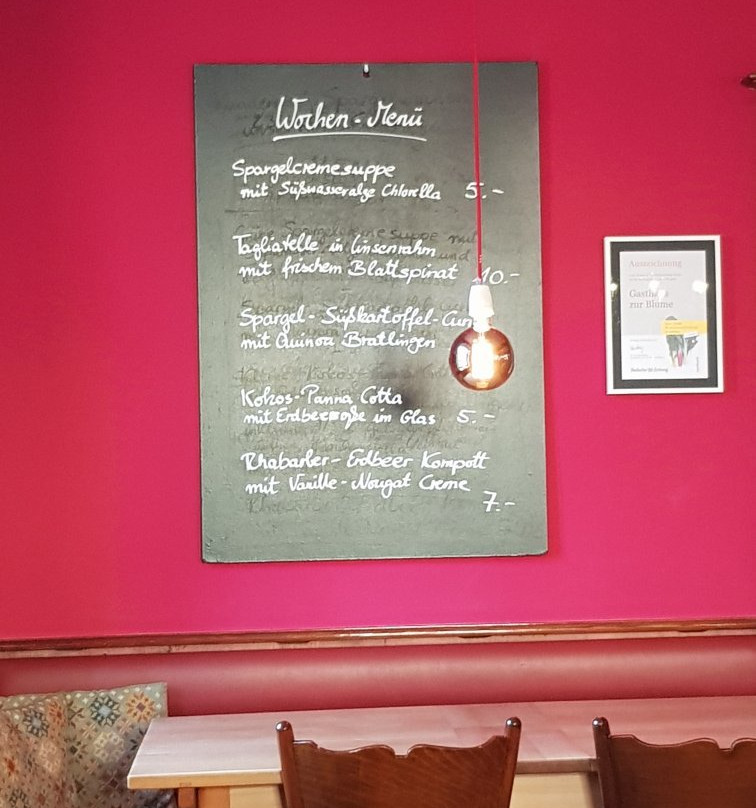 Wochen-Menü
Spargelcremesuppe
mit Süßwasseralge Chlorella 5.-
Tagliatelle in Linsenrahm
mit frischem Blattspinat 10.-
Spargel-Süßkartoffel-Cur
mit Quinoa Bratlingen
Kokos-Panna Cotta
mit Erdbeersoße im Glas 5.-
Rhabarber-Erdbeer Kompott
mit Vanille-Nougat Creme
7.-
Auszeichnung
Gasthaus
zur Blume